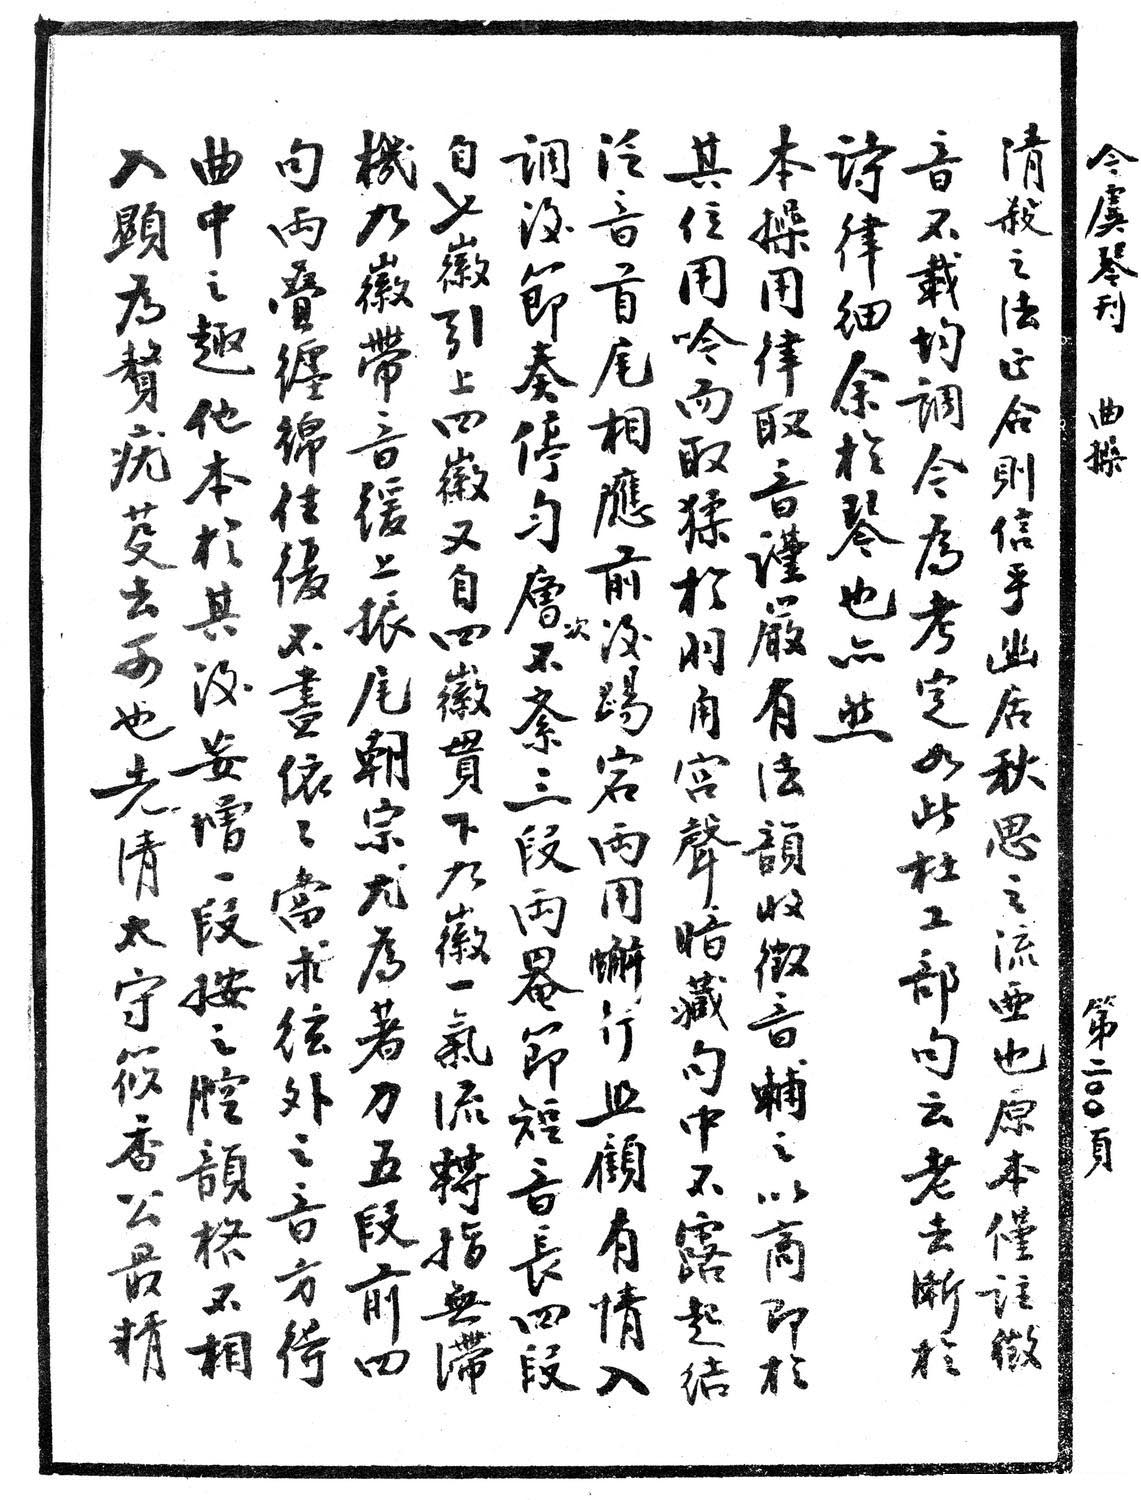 今虞琴刊　曲操　第二〇〇頁
清殺之法正合則信乎幽居秋思之流亜也原本僅註徵
音不載均調今為考定如此杜工部句云老去漸於
詩律細余於琴也亦然
本操用律取音謹嚴有法韻收徵音輔之以商即於
其位用吟而取猱於羽角宮聲暗藏句中不露起結
泛音首尾相應前後踢宕兩用蠏行且顧有情入
調後節奏停勻層次不紊三段兩罨節短音長四段
自七徽引上四徽又自四徽貫下九徽一氣流轉指無滯
機九徽帶音緩上振尾朝宗尤為著力五段前四
句兩疊纏綿往復不盡依々當求絃外之音方得
曲中之趣他本於其後妄增一段按之腔韻格不相
入顯為贅疣芟去可也先清太守筱香公最精